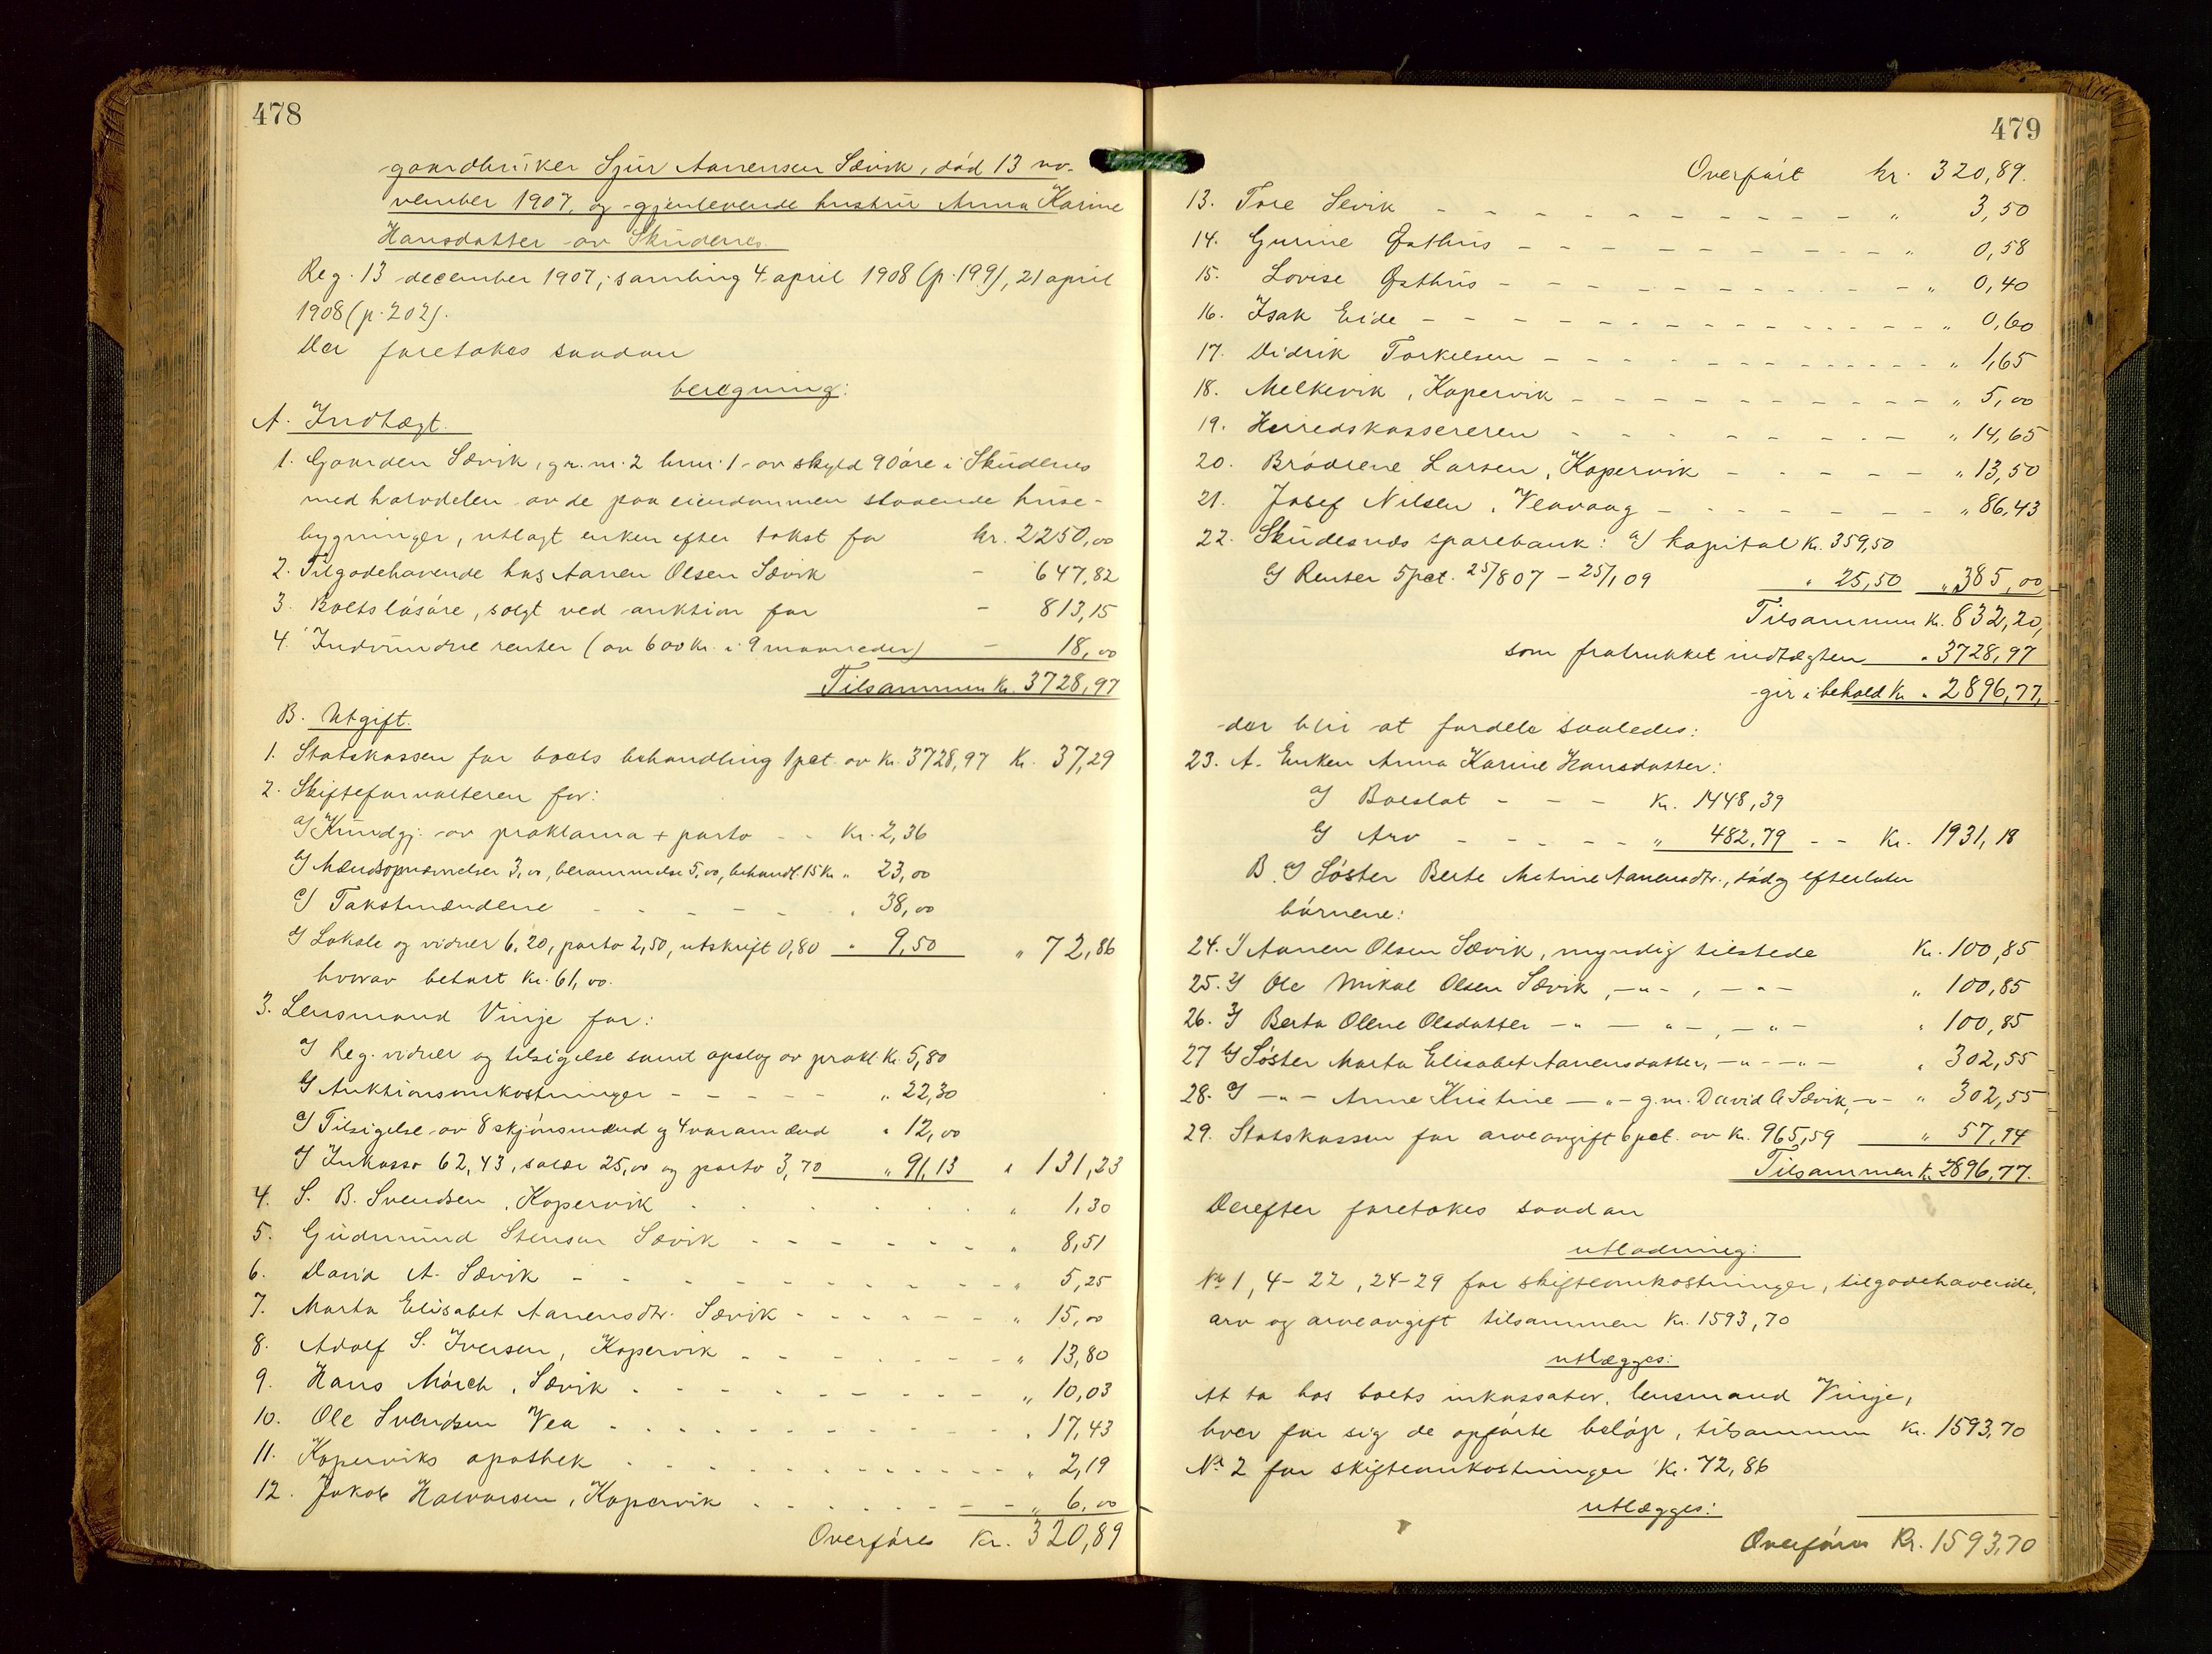 478
gaardbruker Sjur Aanensen Sævik, död 13 no-
vember 1907, og gjenlevende hustru Anna Karine
Hansdatter av Skudenes.
Reg. 13 december 1907; samling 4 april 1908 (p. 199), 21 april
1908 (p. 202).
Der foretokes saadan
beregning:
A. Indtægt.
1. Gaarden Sævik, gr. nr. 2 brnr. 1 av skyld 90 øre i Skudenes
med halvdelen av de paa eiendommen staaende huse-
bygninger, utlagt enken efter takst for kr. 2250,00
2. Tilgodehavende hos Aanen Olsen Sævik - 647,82
3. Boets løsøre, solgt ved auktion for - 813,15
4. Indvundne renter (av 600 kr. i 9 maaneder) - 18,00
Tilsammen Kr. 3728,97
B. Utgift.
1. Statskassen for boets behandling 1 pct. av Kr. 3728,97 Kr. 37,29
2. Skifteforvalteren for:
a) Kundgj. av proklama + porto - - Kr. 2,36
b) Mændsopnævnelser 3,00, berammelse 5,00, behandl. 15 Kr. " 23,00
c) Takstmændene - - - - - " 38,00
d) Lokale og vidner 6,20, porto 2,50, utskrift 0,80 " 9,50 " 72,86
hvorav betalt Kr. 61,00.
3. Lensmand Vinje for:
a) Reg. vidner og tilsigelse samt opslag av prokl. Kr. 5,80
b) Auktionsomkostninger - - - - - " 22,30
c) Tilsigelse av 8 skjønsmænd og 4 varamænd " 12,00
d) Inkasso 62,43, salær 25,00 og porto 3,70 " 91,13 " 131,23
4. S. B. Svendsen, Kopervik . . . . . . " 1,30
5. Gudmund Stensen Sævik - - - - - - " 8,51
6. David A. Sævik - - - - - - - - - - " 5,25
7. Marta Elisabet Aanensdtr. Sævik - - - - - - " 15,00
8. Adolf S. Iversen, Kopervik - - - - - - - - " 13,80
9. Hans Mörch, Sævik - - - - - - - - - " 10,03
10. Ole Svendsen Vea - . . . . . . . . . " 17,43
11. Koperviks apothek . . . . . . . . . - - " 2,19
12. Jakob Halvorsen, Kopervik . . . . . . - - - " 6,00
Overføres Kr. 320,89
479
Overført kr. 320,89.
13. Tore Sevik - - - - - - - - - - - - " 3,50
14. Gurine Østhus - - - - - - - - - - - " 0,58
15. Lovise Østhus - - - - - - - - - - - " 0,40
16. Isak Eide - - - - - - - - - - - - - " 0,60
17. Didrik Torkelsen - - - - - - - - - - - " 1,65
18. Melkevik, Kopervik - - - - - - - - - - " 5,00
19. Herredskassereren - - - - - - - - - " 14,65
20. Brødrene Larsen, Kopervik - - - - - " 13,50
21. Josef Nilsen, Veavaag - - - - - - - - " 86,43
22. Skudesnæs sparebank: a) kapital Kr. 359,50
b) Renter 5 pct. 25/8 07 - 25/1 09 " 25,50 " 385,00
Tilsammen Kr. 832,20,
som fratrukket indtægten " 3728,97
gir i behold Kr " 2896,77,
der blir at fordele saaledes:
23. A. Enken Anna Karine Hansdatter:
a) Boeslot - - - Kr. 1448,39
b) Arv - - - - - " 482,79 - - Kr. 1931,18
B. a) Søster Berte Maline Aanensdtr., død og efterlater
børnene:
24. 1) Aanen Olsen Sævik, myndig tilstede Kr. 100,85
25. 2) Ole Mikal Olsen Sævik, -"- , -"- " 100,85
26. 3) Berta Olene Olsdatter -"- -"-, -"- " 100,85
27 b) Søster Marta Elisabet Aanensdatter, -"- -"- " 302,55
28. c) -"- Anne Kristine -"- g.m. David A Sævik, -"- " 302,55
29. Statskassen for arveavgift 6 pct. av Kr. 965,59 " 57,94
Tilsammen Kr. 2896,77.
Derefter foretokes saadan
utlodning:
No 1, 4-22, 24-29 for skifteomkostninger, tilgodehavende,
arv og arveavgift tilsammen Kr. 1593,70
utlægges:
At ta hos boets inkassator, lensmand Vinje,
hver for sig de opførte beløp, tilsammen Kr. 1593,70
No 2 for skifteomkostninger Kr. 72,86
utlægges:
Overføres Kr. 1593,70